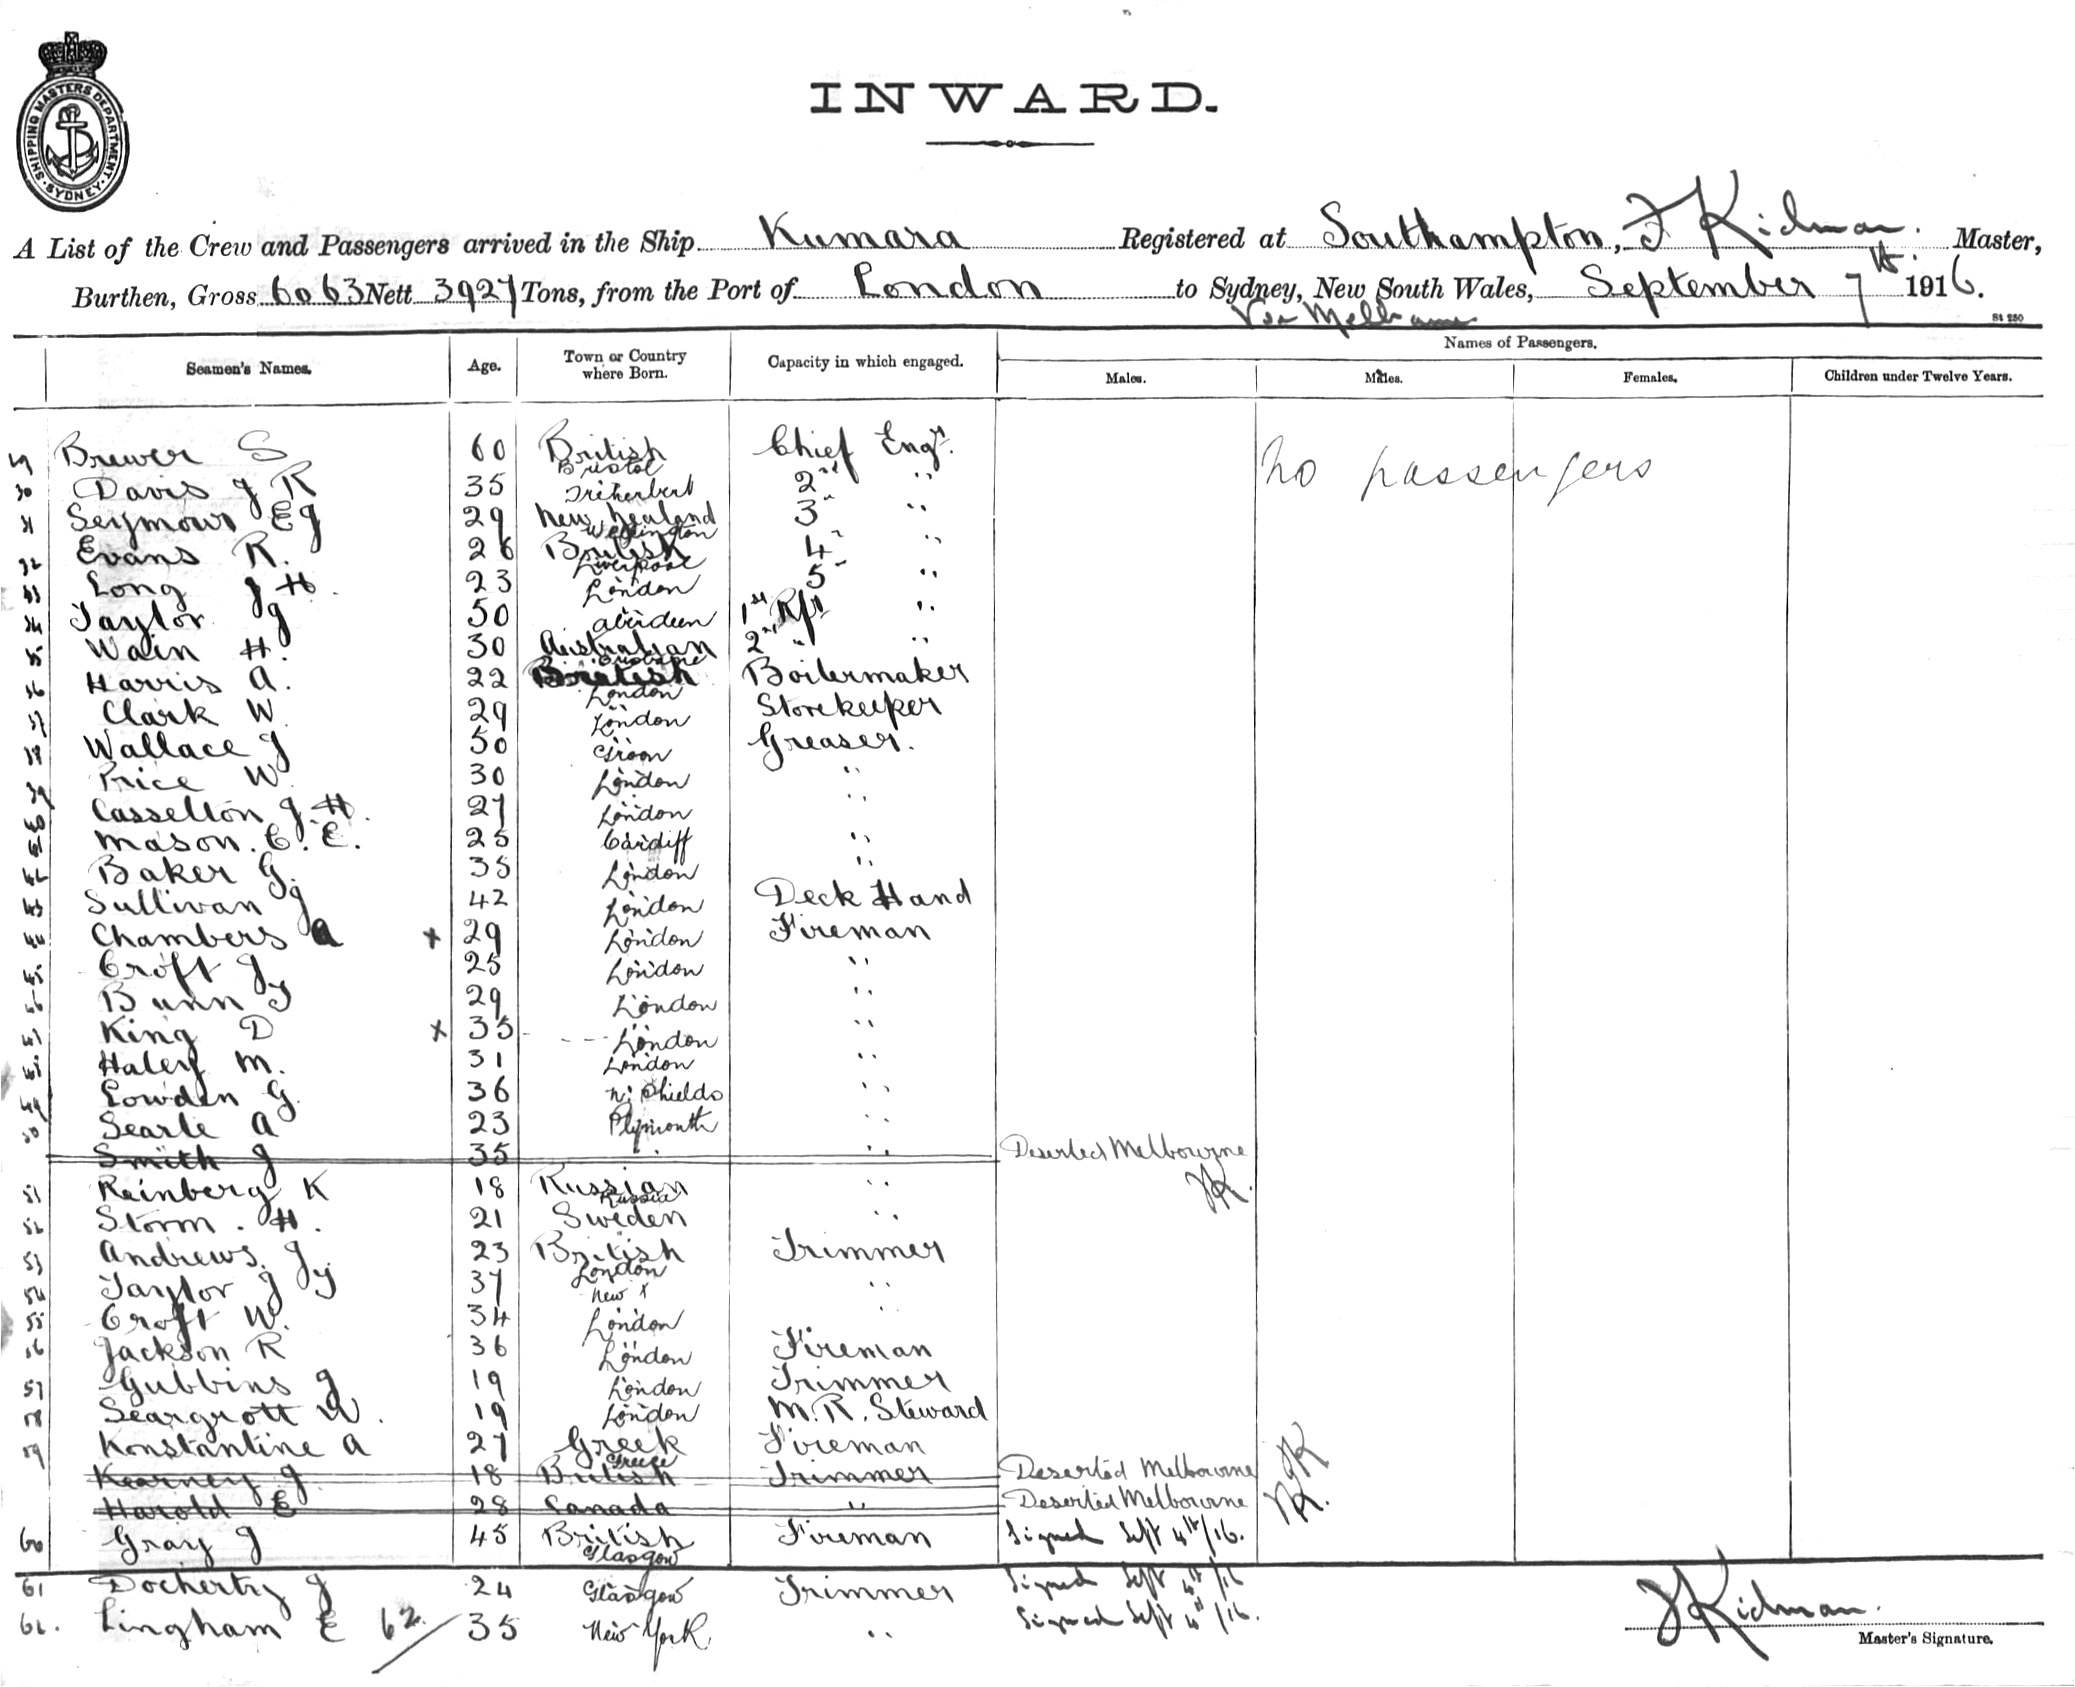 SHIPPING MASTERS DEPARTMENT
SYDNEY
INWARD.
A List of the Crew and Passengers arrived in the Ship Kumara Registered at Southampton, F Kidman. Master,
Burthen, Gross 6063 Nett 3927 Tons, from the Port of London to Sydney, New South Wales, September 7th 1916.
Via Melbourne
St 250
Seamen's Names. Age. Town or Country where Born. Capacity in which engaged. Names of Passengers.
Males. Males. Females. Children under Twelve Years.
no passengers
29 Brewer S 60 British Bristol Chief Engr.
30 Davis J R 35 Treherbert 2nd "
31 Seymour E J 29 New Zealand Wellington 3" "
32 Evans R. 26 British Liverpool 4" "
33 Long J H. 23 London 5" "
34 Taylor J 50 Aberdeen 1st Rfr "
35 Wain H. 30 Australian Brisbane 2nd " "
36 Harris A. 22 British London Boilermaker
37 Clark W. 29 London Storekeeper
38 Wallace J 50 Greaser.
39 Price W 30 London "
40 Casselton J. H. 27 London "
41 Mason. C. E. 25 Cardiff "
42 Baker G. 35 London "
43 Sullivan J 42 London Deck Hand
44 Chambers A x 29 London Fireman
45 Croft J 25 London "
46 Bunn T 29 London "
47 King D x 35 London "
48 Haley M. 31 London "
49 Lowden G. 36 N. Shields "
50 Searle A 23 Plymouth "
Smith J 35 " " Deserted Melbourne
FK.
51 Reinberg K 18 Russian Russia "
52 Storm. H. 21 Sweden "
53 Andrews. J. 23 British London Trimmer
54 Taylor J J 37 New X "
55 Croft W. 34 London "
56 Jackson R 36 London Fireman
57 Gubbins J 19 London Trimmer
58 Seargrott W. 19 London M. R. Steward
59 Konstantine A 27 Greek Greece Fireman
Kearney J. 18 British Trimmer Deserted Melbourne FK
Harold E 28 Canada " Deserted Melbourne FK.
60 Gray J 45 British Glasgow Fireman Signed Sept 4th/16.
61 Docherty J 24 Glasgow Trimmer Signed Sept 4th/16
62. Lingham E 62 35 New York. " Signed Sept 4th/16.
F Kidman.
Master's Signature.